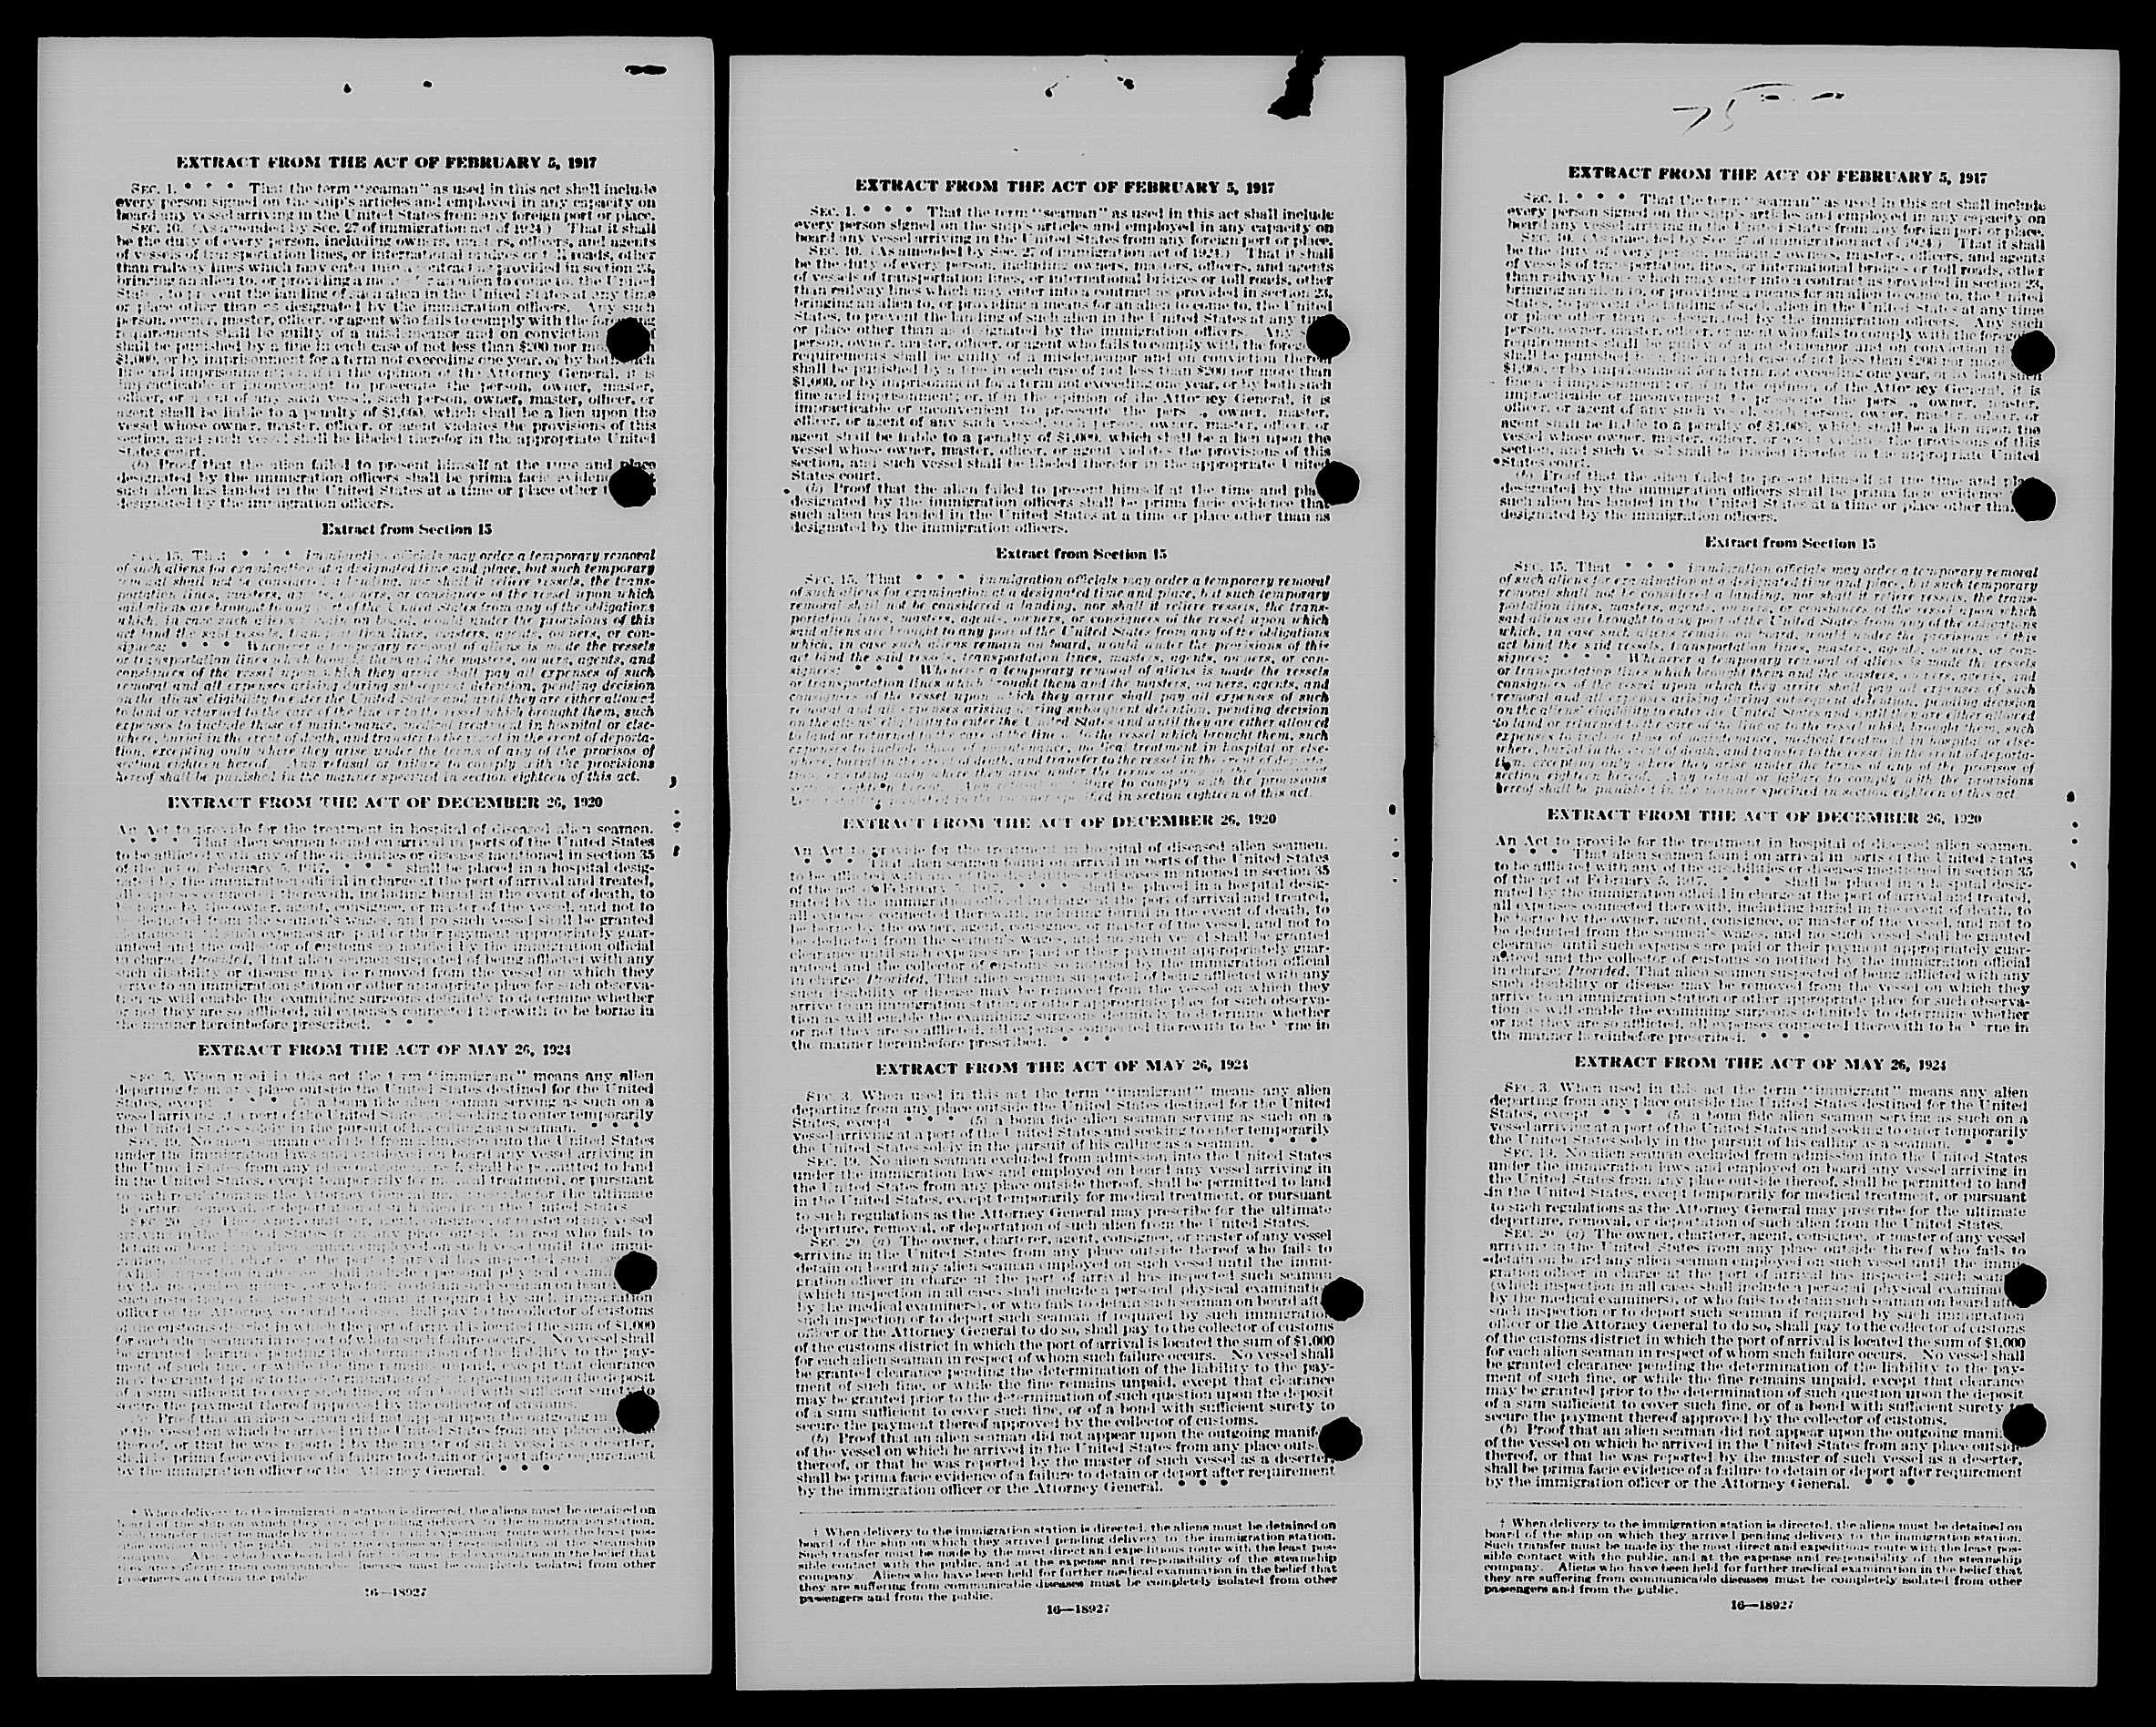 EXTRACT FROM THE ACT OF FEBRUARY 5, 1917
SEC. 1. * * * That the term "seaman" as used in this act shall include
every person signed on the ship's articles and employed in any capacity on
board any vessel arriving in the United States from any foreign port or place.
SEC. 10. (As amended by Sec. 27 of immigration act of 1924.) That it shall
be the duty of every person, including owners, masters, officers, and agents
of vessels of transportation lines, or international bridges or toll roads, other
than railway lines which may enter into a contract as provided in section 23,
bringing an alien to, or providing a means for an alien to come to, the United
States, to prevent the landing of such alien in the United States at any time
or place other than as designated by the immigration officers. Any such
person, owner, master, officer, or agent who fails to comply with the
requirements shall be guilty of a misdemeanor and on conviction
shall be punished by a fine in each case of not less than $200 nor
$1,000, or by imprisonment for a term not exceeding one year, or by
fine and imprisonment; or, if in the opinion of the Attorney General, it is
impracticable or inconvenient to prosecute the person, owner, master,
officer, or agent of any such vessel, such person, owner, master, officer, or
agent shall be liable to a penalty of $1,000, which shall be a lien upon the
vessel whose owner, master, officer, or agent violates the provisions of this
section, and such vessel shall be libeled therefor in the appropriate United
States court.
(b) Proof that the alien failed to present himself at the time and place
designated by the immigration officers shall be prima facie
such alien has landed in the United States at a time or place other
designated by the immigration officers.
Extract from Section 15
SEC. 15. That * * * immigration officials may order a temporary removal
of such aliens for examination at a designated time and place, but such temporary
removal shall not be considered a landing, nor shall it relieve vessels, the trans-
portation lines, masters, agents, owners, or consignees of the vessel upon which
said aliens are brought to any port of the United States from any of the obligations
which, in case such aliens remain on board, would under the provisions of this
act bind the said vessels, transportation lines, masters, agents, owners, or con-
signees: * * * Whenever a temporary removal of aliens is made the vessels
or transportation lines which brought them and the masters, owners, agents, and
consignees of the vessel upon which they arrive shall pay all expenses of such
removal and all expenses arising during subsequent detention, pending decision
on the aliens' eligibility to enter the United States and until they are either allowed
to land or returned to the care of the line or to the vessel which brought them, such
expenses to include those of maintenance, medical treatment in hospital or else-
where, burial in the event of death, and transfer to the vessel in the event of deporta-
tion, excepting only where they arise under the terms of any of the provisos of
section eighteen hereof. Any refusal or failure to comply with the provisions
hereof shall be punished in the manner specified in section eighteen of this act.
EXTRACT FROM THE ACT OF DECEMBER 26, 1920
An Act to provide for the treatment in hospital of diseased alien seamen.
* * * That alien seamen found on arrival in ports of the United States
to be afflicted with any of the disabilities or diseases mentioned in section 35
of the act of February 5, 1917, * * * shall be placed in a hospital desig-
nated by the immigration official in charge at the port of arrival and treated,
all expenses connected therewith, including burial in the event of death, to
be borne by the owner, agent, consignee, or master of the vessel, and not to
be deducted from the seamen's wages, and no such vessel shall be granted
clearance until such expenses are paid or their payment appropriately guar-
anteed and the collector of customs so notified by the immigration official
in charge: Provided, That alien seamen suspected of being afflicted with any
such disability or disease may be removed from the vessel on which they
arrive to an immigration station or other appropriate place for such observa-
tion as will enable the examining surgeons definitely to determine whether
or not they are so afflicted, all expenses connected therewith to be borne in
the manner hereinbefore prescribed. * * *
EXTRACT FROM THE ACT OF MAY 26, 1924
SEC. 3. When used in this act the term "immigrant" means any alien
departing from any place outside the United States destined for the United
States, except * * * (5) a bona fide alien seaman serving as such on a
vessel arriving at a port of the United States and seeking to enter temporarily
the United States solely in the pursuit of his calling as a seaman. * * * *
SEC. 19. No alien seaman excluded from admission into the United States
under the immigration laws and employed on board any vessel arriving in
the United States from any place outside thereof, shall be permitted to land
in the United States, except temporarily for medical treatment, or pursuant
to such regulations as the Attorney General may prescribe for the ultimate
departure, removal, or deportation of such alien from the United States.
SEC. 20. (a) The owner, charterer, agent, consignee, or master of any vessel
arriving in the United States from any place outside thereof who fails to
detain on board any alien seaman employed on such vessel until the immi-
gration officer in charge at the port of arrival has inspected such
(which inspection in all cases shall include a personal physical
by the medical examiners), or who fails to detain such seaman on board
such inspection or to deport such seaman if required by such immigration
officer or the Attorney General to do so, shall pay to the collector of customs
of the customs district in which the port of arrival is located the sum of $1,000
for each alien seaman in respect of whom such failure occurs. No vessel shall
be granted clearance pending the determination of the liability to the pay-
ment of such fine, or while the fine remains unpaid, except that clearance
may be granted prior to the determination of such question upon the deposit
of a sum sufficient to cover such fine, or of a bond with sufficient surety to
secure the payment thereof approved by the collector of customs.
(b) Proof that an alien seaman did not appear upon the outgoing
of the vessel on which he arrived in the United States from any place
thereof, or that he was reported by the master of such vessel as a deserter,
shall be prima facie evidence of a failure to detain or deport after requirement
by the immigration officer or the Attorney General. * * *
† When delivery to the immigration station is directed, the aliens must be detained on
board of the ship on which they arrived pending delivery to the immigration station.
Such transfer must be made by the most direct and expeditious route with the least pos-
sible contact with the public, and at the expense and responsibility of the steamship
company. Aliens who have been held for further medical examination in the belief that
they are suffering from communicable diseases must be completely isolated from other
passengers and from the public.
16—18927
EXTRACT FROM THE ACT OF FEBRUARY 5, 1917
SEC. 1. * * * That the term "seaman" as used in this act shall include
every person signed on the ship's articles and employed in any capacity on
board any vessel arriving in the United States from any foreign port or place.
SEC. 10. (As amended by Sec. 27 of immigration act of 1924.) That it shall
be the duty of every person, including owners, masters, officers, and agents
of vessels of transportation lines, or international bridges or toll roads, other
than railway lines which may enter into a contract as provided in section 23,
bringing an alien to, or providing a means for an alien to come to, the United
States, to prevent the landing of such alien in the United States at any time
or place other than as designated by the immigration officers. Any
person, owner, master, officer, or agent who fails to comply with the
requirements shall be guilty of a misdemeanor and on conviction thereof
shall be punished by a fine in each case of not less than $200 nor more than
$1,000, or by imprisonment for a term not exceeding one year, or by both such
fine and imprisonment; or, if in the opinion of the Attorney General, it is
impracticable or inconvenient to prosecute the person, owner, master,
officer, or agent of any such vessel, such person, owner, master, officer, or
agent shall be liable to a penalty of $1,000, which shall be a lien upon the
vessel whose owner, master, officer, or agent violates the provisions of this
section, and such vessel shall be libeled therefor in the appropriate United
States court.
(b) Proof that the alien failed to present himself at the time and
designated by the immigration officers shall be prima facie evidence that
such alien has landed in the United States at a time or place other than as
designated by the immigration officers.
Extract from Section 15
SEC. 15. That * * * immigration officials may order a temporary removal
of such aliens for examination at a designated time and place, but such temporary
removal shall not be considered a landing, nor shall it relieve vessels, the trans-
portation lines, masters, agents, owners, or consignees of the vessel upon which
said aliens are brought to any port of the United States from any of the obligations
which, in case such aliens remain on board, would under the provisions of this
act bind the said vessels, transportation lines, masters, agents, owners, or con-
signees: * * * Whenever a temporary removal of aliens is made the vessels
or transportation lines which brought them and the masters, owners, agents, and
consignees of the vessel upon which they arrive shall pay all expenses of such
removal and all expenses arising during subsequent detention, pending decision
on the aliens' eligibility to enter the United States and until they are either allowed
to land or returned to the care of the line or to the vessel which brought them, such
expenses to include those of maintenance, medical treatment in hospital or else-
where, burial in the event of death, and transfer to the vessel in the event of deporta-
tion, excepting only where they arise under the terms of any of the provisos of
section eighteen hereof. Any refusal or failure to comply with the provisions
hereof shall be punished in the manner specified in section eighteen of this act.
EXTRACT FROM THE ACT OF DECEMBER 26, 1920
An Act to provide for the treatment in hospital of diseased alien seamen.
* * * * That alien seamen found on arrival in ports of the United States
to be afflicted with any of the disabilities or diseases mentioned in section 35
of the act of February 5, 1917, * * * shall be placed in a hospital desig-
nated by the immigration official in charge at the port of arrival and treated,
all expenses connected therewith, including burial in the event of death, to
be borne by the owner, agent, consignee, or master of the vessel, and not to
be deducted from the seamen's wages, and no such vessel shall be granted
clearance until such expenses are paid or their payment appropriately guar-
anteed and the collector of customs so notified by the immigration official
in charge: Provided, That alien seamen suspected of being afflicted with any
such disability or disease may be removed from the vessel on which they
arrive to an immigration station or other appropriate place for such observa-
tion as will enable the examining surgeons definitely to determine whether
or not they are so afflicted, all expenses connected therewith to be borne in
the manner hereinbefore prescribed. * * *
EXTRACT FROM THE ACT OF MAY 26, 1924
SEC. 3. When used in this act the term "immigrant" means any alien
departing from any place outside the United States destined for the United
States, except * * * (5) a bona fide alien seaman serving as such on a
vessel arriving at a port of the United States and seeking to enter temporarily
the United States solely in the pursuit of his calling as a seaman. * * * *
SEC. 19. No alien seaman excluded from admission into the United States
under the immigration laws and employed on board any vessel arriving in
the United States from any place outside thereof, shall be permitted to land
in the United States, except temporarily for medical treatment, or pursuant
to such regulations as the Attorney General may prescribe for the ultimate
departure, removal, or deportation of such alien from the United States.
SEC. 20. (a) The owner, charterer, agent, consignee, or master of any vessel
arriving in the United States from any place outside thereof who fails to
detain on board any alien seaman employed on such vessel until the immi-
gration officer in charge at the port of arrival has inspected such seaman
(which inspection in all cases shall include a personal physical examination
by the medical examiners), or who fails to detain such seaman on board
such inspection or to deport such seaman if required by such immigration
officer or the Attorney General to do so, shall pay to the collector of customs
of the customs district in which the port of arrival is located the sum of $1,000
for each alien seaman in respect of whom such failure occurs. No vessel shall
be granted clearance pending the determination of the liability to the pay-
ment of such fine, or while the fine remains unpaid, except that clearance
may be granted prior to the determination of such question upon the deposit
of a sum sufficient to cover such fine, or of a bond with sufficient surety to
secure the payment thereof approved by the collector of customs.
(b) Proof that an alien seaman did not appear upon the outgoing
of the vessel on which he arrived in the United States from any place
thereof, or that he was reported by the master of such vessel as a deserter,
shall be prima facie evidence of a failure to detain or deport after requirement
by the immigration officer or the Attorney General. * * *
† When delivery to the immigration station is directed, the aliens must be detained on
board of the ship on which they arrived pending delivery to the immigration station.
Such transfer must be made by the most direct and expeditious route with the least pos-
sible contact with the public, and at the expense and responsibility of the steamship
company. Aliens who have been held for further medical examination in the belief that
they are suffering from communicable diseases must be completely isolated from other
passengers and from the public.
16—18927
75
EXTRACT FROM THE ACT OF FEBRUARY 5, 1917
SEC. 1. * * * That the term "seaman" as used in this act shall include
every person signed on the ship's articles and employed in any capacity on
board any vessel arriving in the United States from any foreign port or place.
SEC. 10. (As amended by Sec. 27 of immigration act of 1924.) That it shall
be the duty of every person, including owners, masters, officers, and agents
of vessels of transportation lines, or international bridges or toll roads, other
than railway lines which may enter into a contract as provided in section 23,
bringing an alien to, or providing a means for an alien to come to, the United
States, to prevent the landing of such alien in the United States at any time
or place other than as designated by the immigration officers. Any such
person, owner, master, officer, or agent who fails to comply with the
requirements shall be guilty of a misdemeanor and on conviction
shall be punished by a fine in each case of not less than $200 nor more
$1,000, or by imprisonment for a term not exceeding one year, or by both such
fine and imprisonment; or, if in the opinion of the Attorney General, it is
impracticable or inconvenient to prosecute the person, owner, master,
officer, or agent of any such vessel, such person, owner, master, officer, or
agent shall be liable to a penalty of $1,000, which shall be a lien upon the
vessel whose owner, master, officer, or agent violates the provisions of this
section, and such vessel shall be libeled therefor in the appropriate United
States court.
(b) Proof that the alien failed to present himself at the time and
designated by the immigration officers shall be prima facie evidence
such alien has landed in the United States at a time or place other
designated by the immigration officers.
Extract from Section 15
SEC. 15. That * * * immigration officials may order a temporary removal
of such aliens for examination at a designated time and place, but such temporary
removal shall not be considered a landing, nor shall it relieve vessels, the trans-
portation lines, masters, agents, owners, or consignees of the vessel upon which
said aliens are brought to any port of the United States from any of the obligations
which, in case such aliens remain on board, would under the provisions of this
act bind the said vessels, transportation lines, masters, agents, owners, or con-
signees: * * * Whenever a temporary removal of aliens is made the vessels
or transportation lines which brought them and the masters, owners, agents, and
consignees of the vessel upon which they arrive shall pay all expenses of such
removal and all expenses arising during subsequent detention, pending decision
on the aliens' eligibility to enter the United States and until they are either allowed
to land or returned to the care of the line or to the vessel which brought them, such
expenses to include those of maintenance, medical treatment in hospital or else-
where, burial in the event of death, and transfer to the vessel in the event of deporta-
tion, excepting only where they arise under the terms of any of the provisos of
section eighteen hereof. Any refusal or failure to comply with the provisions
hereof shall be punished in the manner specified in section eighteen of this act.
EXTRACT FROM THE ACT OF DECEMBER 26, 1920
An Act to provide for the treatment in hospital of diseased alien seamen.
* * * That alien seamen found on arrival in ports of the United States
to be afflicted with any of the disabilities or diseases mentioned in section 35
of the act of February 5, 1917, * * * shall be placed in a hospital desig-
nated by the immigration official in charge at the port of arrival and treated,
all expenses connected therewith, including burial in the event of death, to
be borne by the owner, agent, consignee, or master of the vessel, and not to
be deducted from the seamen's wages, and no such vessel shall be granted
clearance until such expenses are paid or their payment appropriately guar-
anteed and the collector of customs so notified by the immigration official
in charge: Provided, That alien seamen suspected of being afflicted with any
such disability or disease may be removed from the vessel on which they
arrive to an immigration station or other appropriate place for such observa-
tion as will enable the examining surgeons definitely to determine whether
or not they are so afflicted, all expenses connected therewith to be borne in
the manner hereinbefore prescribed. * * *
EXTRACT FROM THE ACT OF MAY 26, 1924
SEC. 3. When used in this act the term "immigrant" means any alien
departing from any place outside the United States destined for the United
States, except * * * (5) a bona fide alien seaman serving as such on a
vessel arriving at a port of the United States and seeking to enter temporarily
the United States solely in the pursuit of his calling as a seaman. * * *
SEC. 19. No alien seaman excluded from admission into the United States
under the immigration laws and employed on board any vessel arriving in
the United States from any place outside thereof, shall be permitted to land
in the United States, except temporarily for medical treatment, or pursuant
to such regulations as the Attorney General may prescribe for the ultimate
departure, removal, or deportation of such alien from the United States.
SEC. 20. (a) The owner, charterer, agent, consignee, or master of any vessel
arriving in the United States from any place outside thereof who fails to
detain on board any alien seaman employed on such vessel until the immi-
gration officer in charge at the port of arrival has inspected such
(which inspection in all cases shall include a personal physical
by the medical examiners), or who fails to detain such seaman on board
such inspection or to deport such seaman if required by such immigration
officer or the Attorney General to do so, shall pay to the collector of customs
of the customs district in which the port of arrival is located the sum of $1,000
for each alien seaman in respect of whom such failure occurs. No vessel shall
be granted clearance pending the determination of the liability to the pay-
ment of such fine, or while the fine remains unpaid, except that clearance
may be granted prior to the determination of such question upon the deposit
of a sum sufficient to cover such fine, or of a bond with sufficient surety
secure the payment thereof approved by the collector of customs.
(b) Proof that an alien seaman did not appear upon the outgoing
of the vessel on which he arrived in the United States from any place outside
thereof, or that he was reported by the master of such vessel as a deserter,
shall be prima facie evidence of a failure to detain or deport after requirement
by the immigration officer or the Attorney General. * * *
† When delivery to the immigration station is directed, the aliens must be detained on
board of the ship on which they arrived pending delivery to the immigration station.
Such transfer must be made by the most direct and expeditious route with the least pos-
sible contact with the public, and at the expense and responsibility of the steamship
company. Aliens who have been held for further medical examination in the belief that
they are suffering from communicable diseases must be completely isolated from other
passengers and from the public.
16—18927